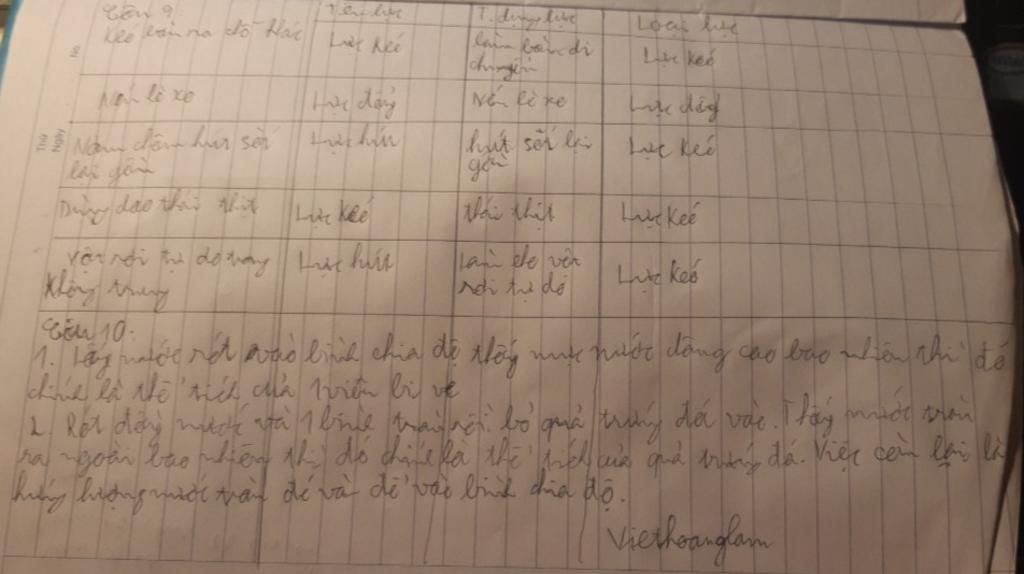 Câu 9. Tên lực T. dụng lực Loại lực
Kéo bàn ra chỗ khác Lực kéo làm bàn di chuyển Lực kéo
Nén lò xo Lực đẩy Nén lò xo Lực đẩy
Thứ Ngày
Nam châm hút sắt lại gần Lực hút hút sắt lại gần Lực kéo
Dùng dao thái thịt Lực kéo thái thịt Lực kéo
Vật rơi tự do trong không trung Lực hút Làm cho vật rơi tự do Lực kéo
Câu 10:
1. Lấy nước rót vào bình chia độ thấy mực nước dâng cao bao nhiêu thì đó
chính là thể tích của 1 viên bi ve
2. Rót đầy nước và 1 bình tràn rồi bỏ quả trứng đá vào. Thấy nước tràn
ra ngoài bao nhiêu thì đó chính là thể tích của quả trứng đá. Việc còn lại là
hứng lượng nước tràn đó và đổ vào bình chia độ.
Viethoanglam